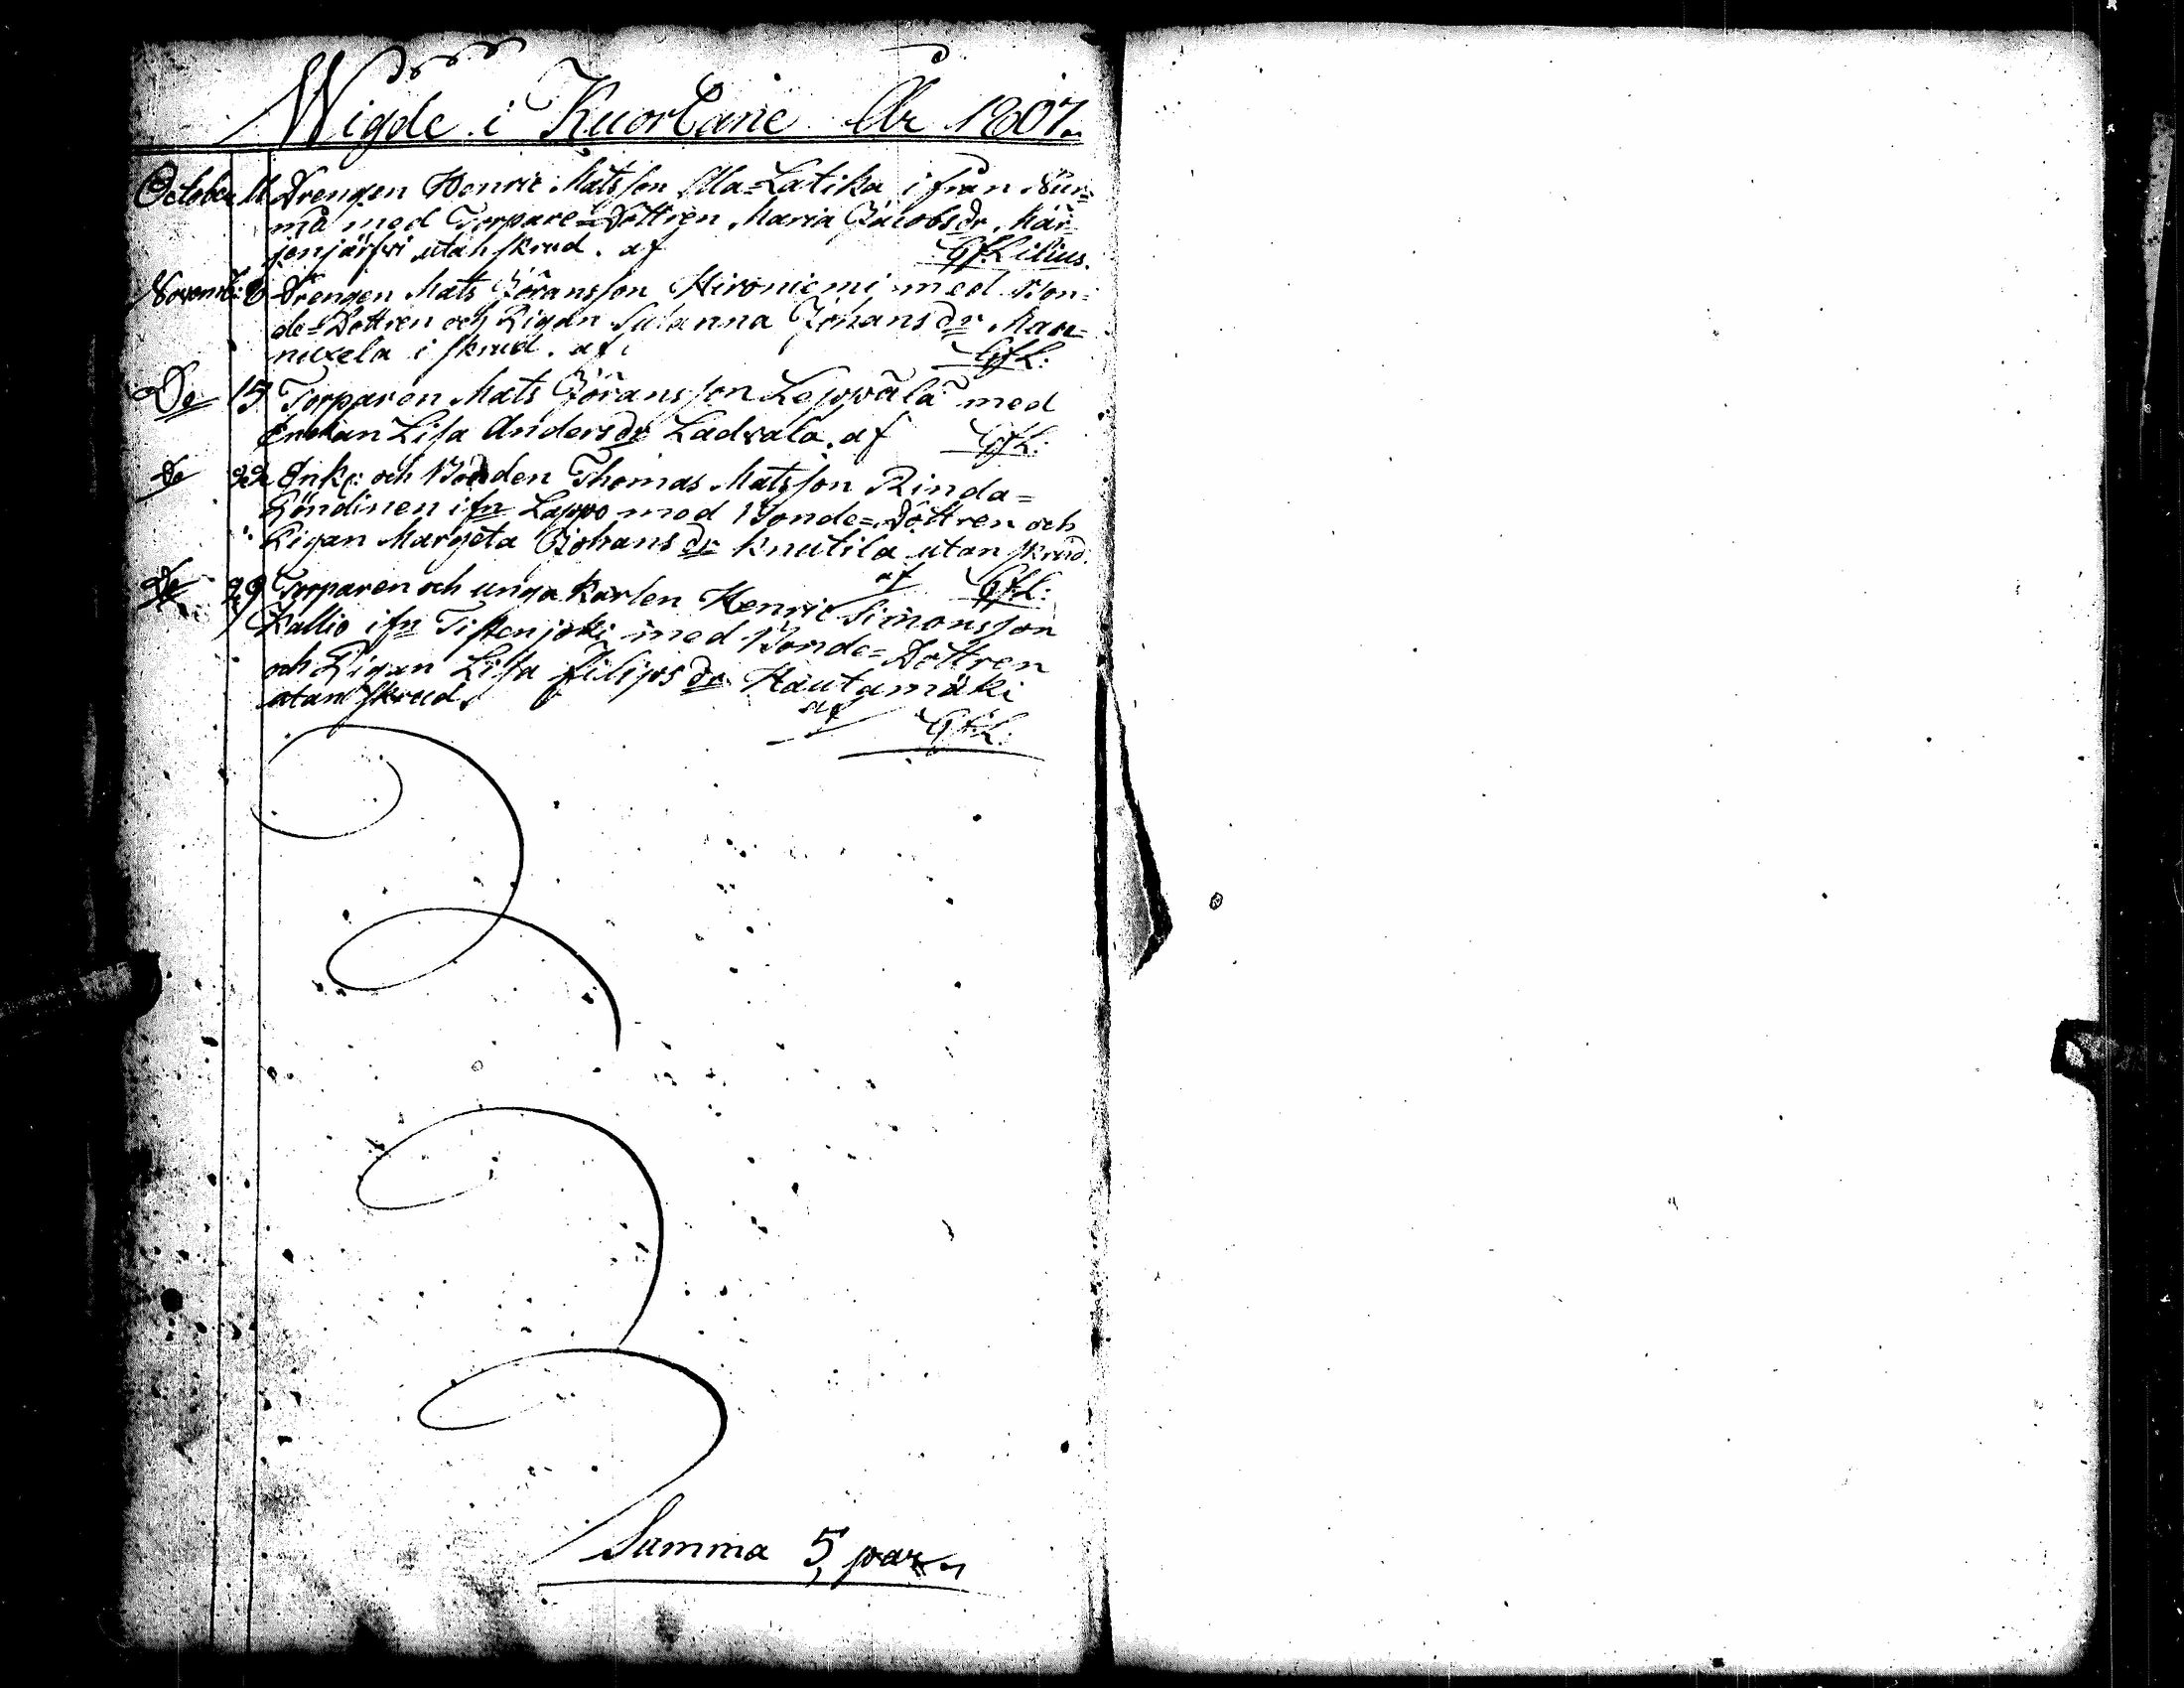 Wigde i Kuortane År 1807.
October 11. Drengen Henric Matsson Ala=Latika ifrån Nur=
må med Torpare=Dottren Maria Jacobsdr. Kär=
jenjärfwi utan skrud. af GfLilius.
Novemb: 8. Drengen Mats Göransson Hironiemi med Bon=
de=Dottren och Pigan Susanna Johansdr Man=
nuxela i skrud. af GfL:
Do 15. Torparen Mats Göransson Leppälä med
Enkan Lisa Andersdr Ladvala. af GfL:
Do 22. Enkl: och Bonden Thomas Matsson Rinda=
Röndinen ifn Lappo med Bonde=Dottren och
Pigan Margeta Johansdr Knutila utan skrud.
af GfL:
Do 29. Torparen och unga Karlen Henric Simonsson
Kallio ifn Tistenjoki med Bonde=Dottren
och Pigan Lisa Filipsdr Hautamäki
utan skrud.
af GfL:
Summa 5, par